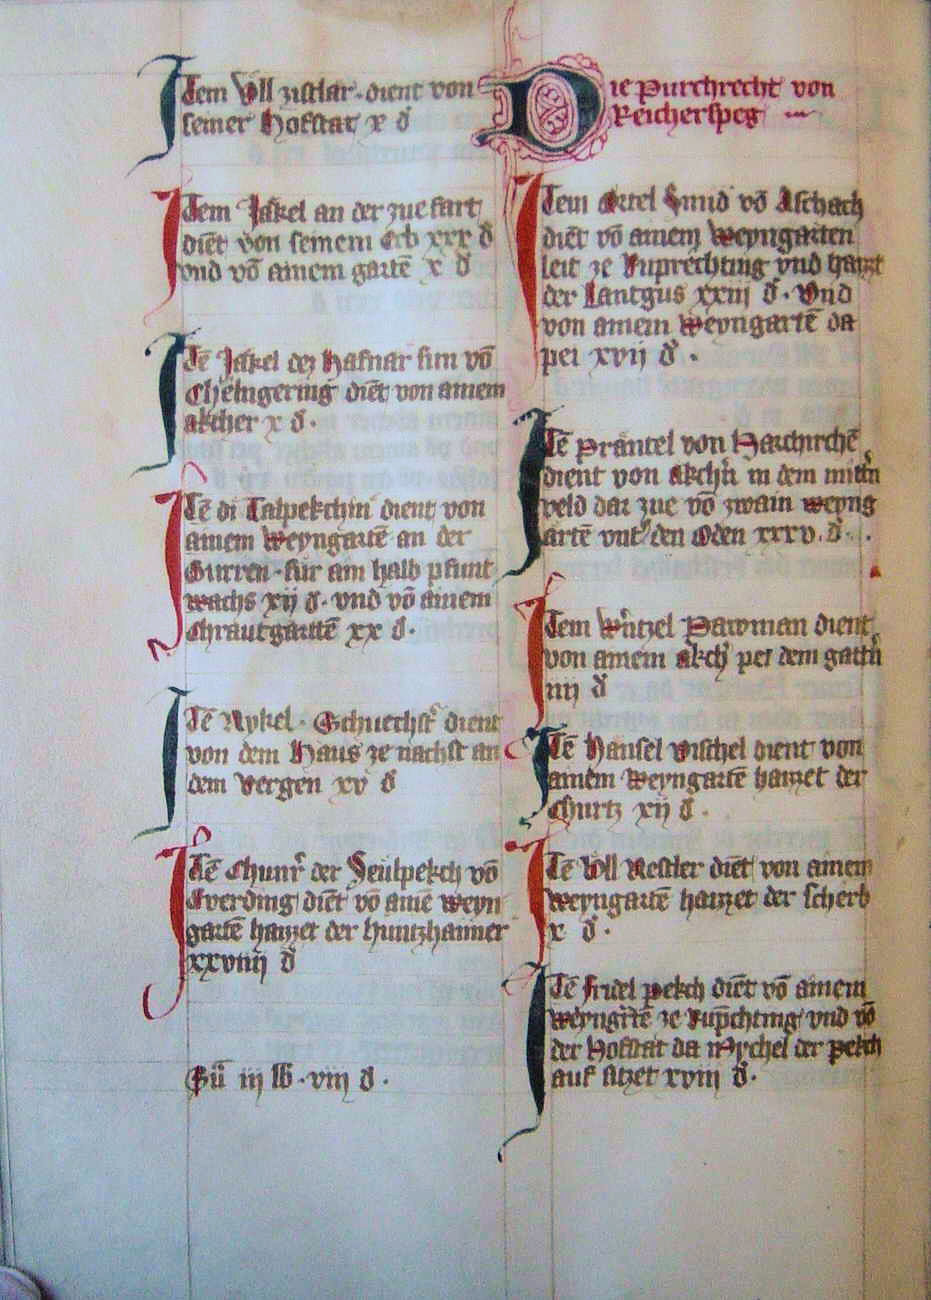 Item Vll zistlar · dient von
seiner Hofstat x d
Item Jakel an der zuefart
diēt von seinem Erb xxx d
vnd vō ainem gartē x d
Itē Jäkel dez hafnar sun vō
diēt von ainem
akcher x d ·
Itē di Talpekchin dient von
ainem Weyngartē an der
Gurren · für am halb pfunt
wachs xij d · vnd vō ainem
Chrautgartē xx d ·
Itē Nykel · dient
von dem Haus ze nachst an
dem vergen xv d
Itē Chunr̄ der vō
Everding diēt vō ainē weyn
gartē haizzet der
xxviiij d
Sū iij lb · viij d ·
Die Purchrecht von
Reicherspeg
Item Ortel Smid vō Aschach
diēt vō ainem Weyngarten
leit ze Ruprechting vnd haizzt
der Lantgus xxiij d · Vnd
von ainem Weyngartē da
pei xvij d ·
Itē Präntel von Hartchirchē
dient von akchn̄ in dem mittn̄
veld dar zue vō zwain weyng
ārtē vnt den Oden xxxv · d ·
Item Wn̄tzel Pawman dient
von ainem akch pei dem gattn̄
iiij d
Itē Hansel vischel dient von
ainem Weyngartē haizzet der
Churtz xij d ·
Itē Vll Nestler diēt von ainem
Weyngartē haizzet der scherb
x d ·
Itē fridel pekch diēt vō ainem
weyngrtē ze Rupchting vnd vō
der Hofstat da Mychel der pekch
auf sitzet xviij d ·